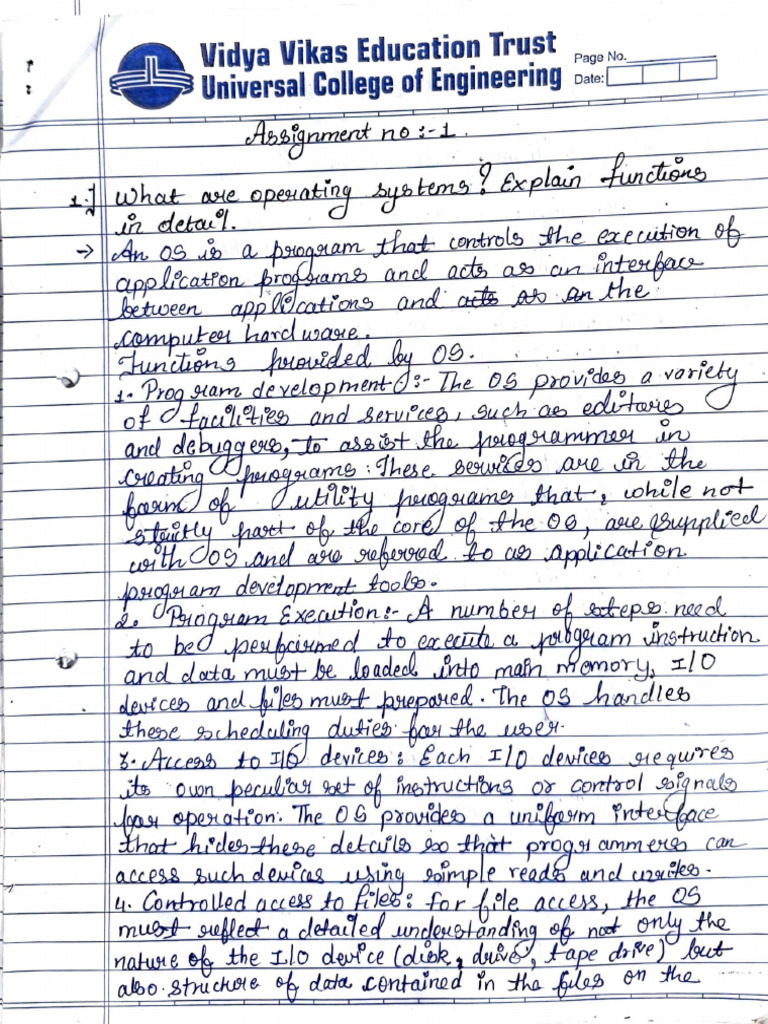 Vidya Vikas Education Trust
Universal College of Engineering
Page No.
Date:
Assignment no :- 1.
1.] What are operating systems? Explain functions
in detail.
→ An OS is a program that controls the execution of
application programs and acts as an interface
between applications and acts as an the
computer hardware.
Functions provided by OS.
1. Program development :- The OS provides a variety
of facilities and services, such as editors
and debuggers, to assist the programmer in
creating programs. These services are in the
form of utility programs that, while not
strictly part of the core of the OS, are supplied
with OS and are referred to as application
program development tools.
2. Program Execution:- A number of steps need
to be performed to execute a program instruction
and data must be loaded into main memory, I/O
devices and files must prepared. The OS handles
these scheduling duties for the user.
3. Access to I/O devices: Each I/O devices requires
its own peculiar set of instructions or control signals
for operation. The OS provides a uniform interface
that hides these details so that programmers can
access such devices using simple reads and writes.
4. Controlled access to files: for file access, the OS
must reflect a detailed understanding of not only the
nature of the I/O device (disk, drive, tape drive) but
also structure of data contained in the files on the